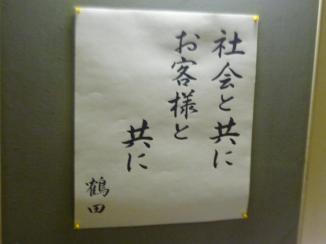 社会と共に
お客様と
共に
鶴田